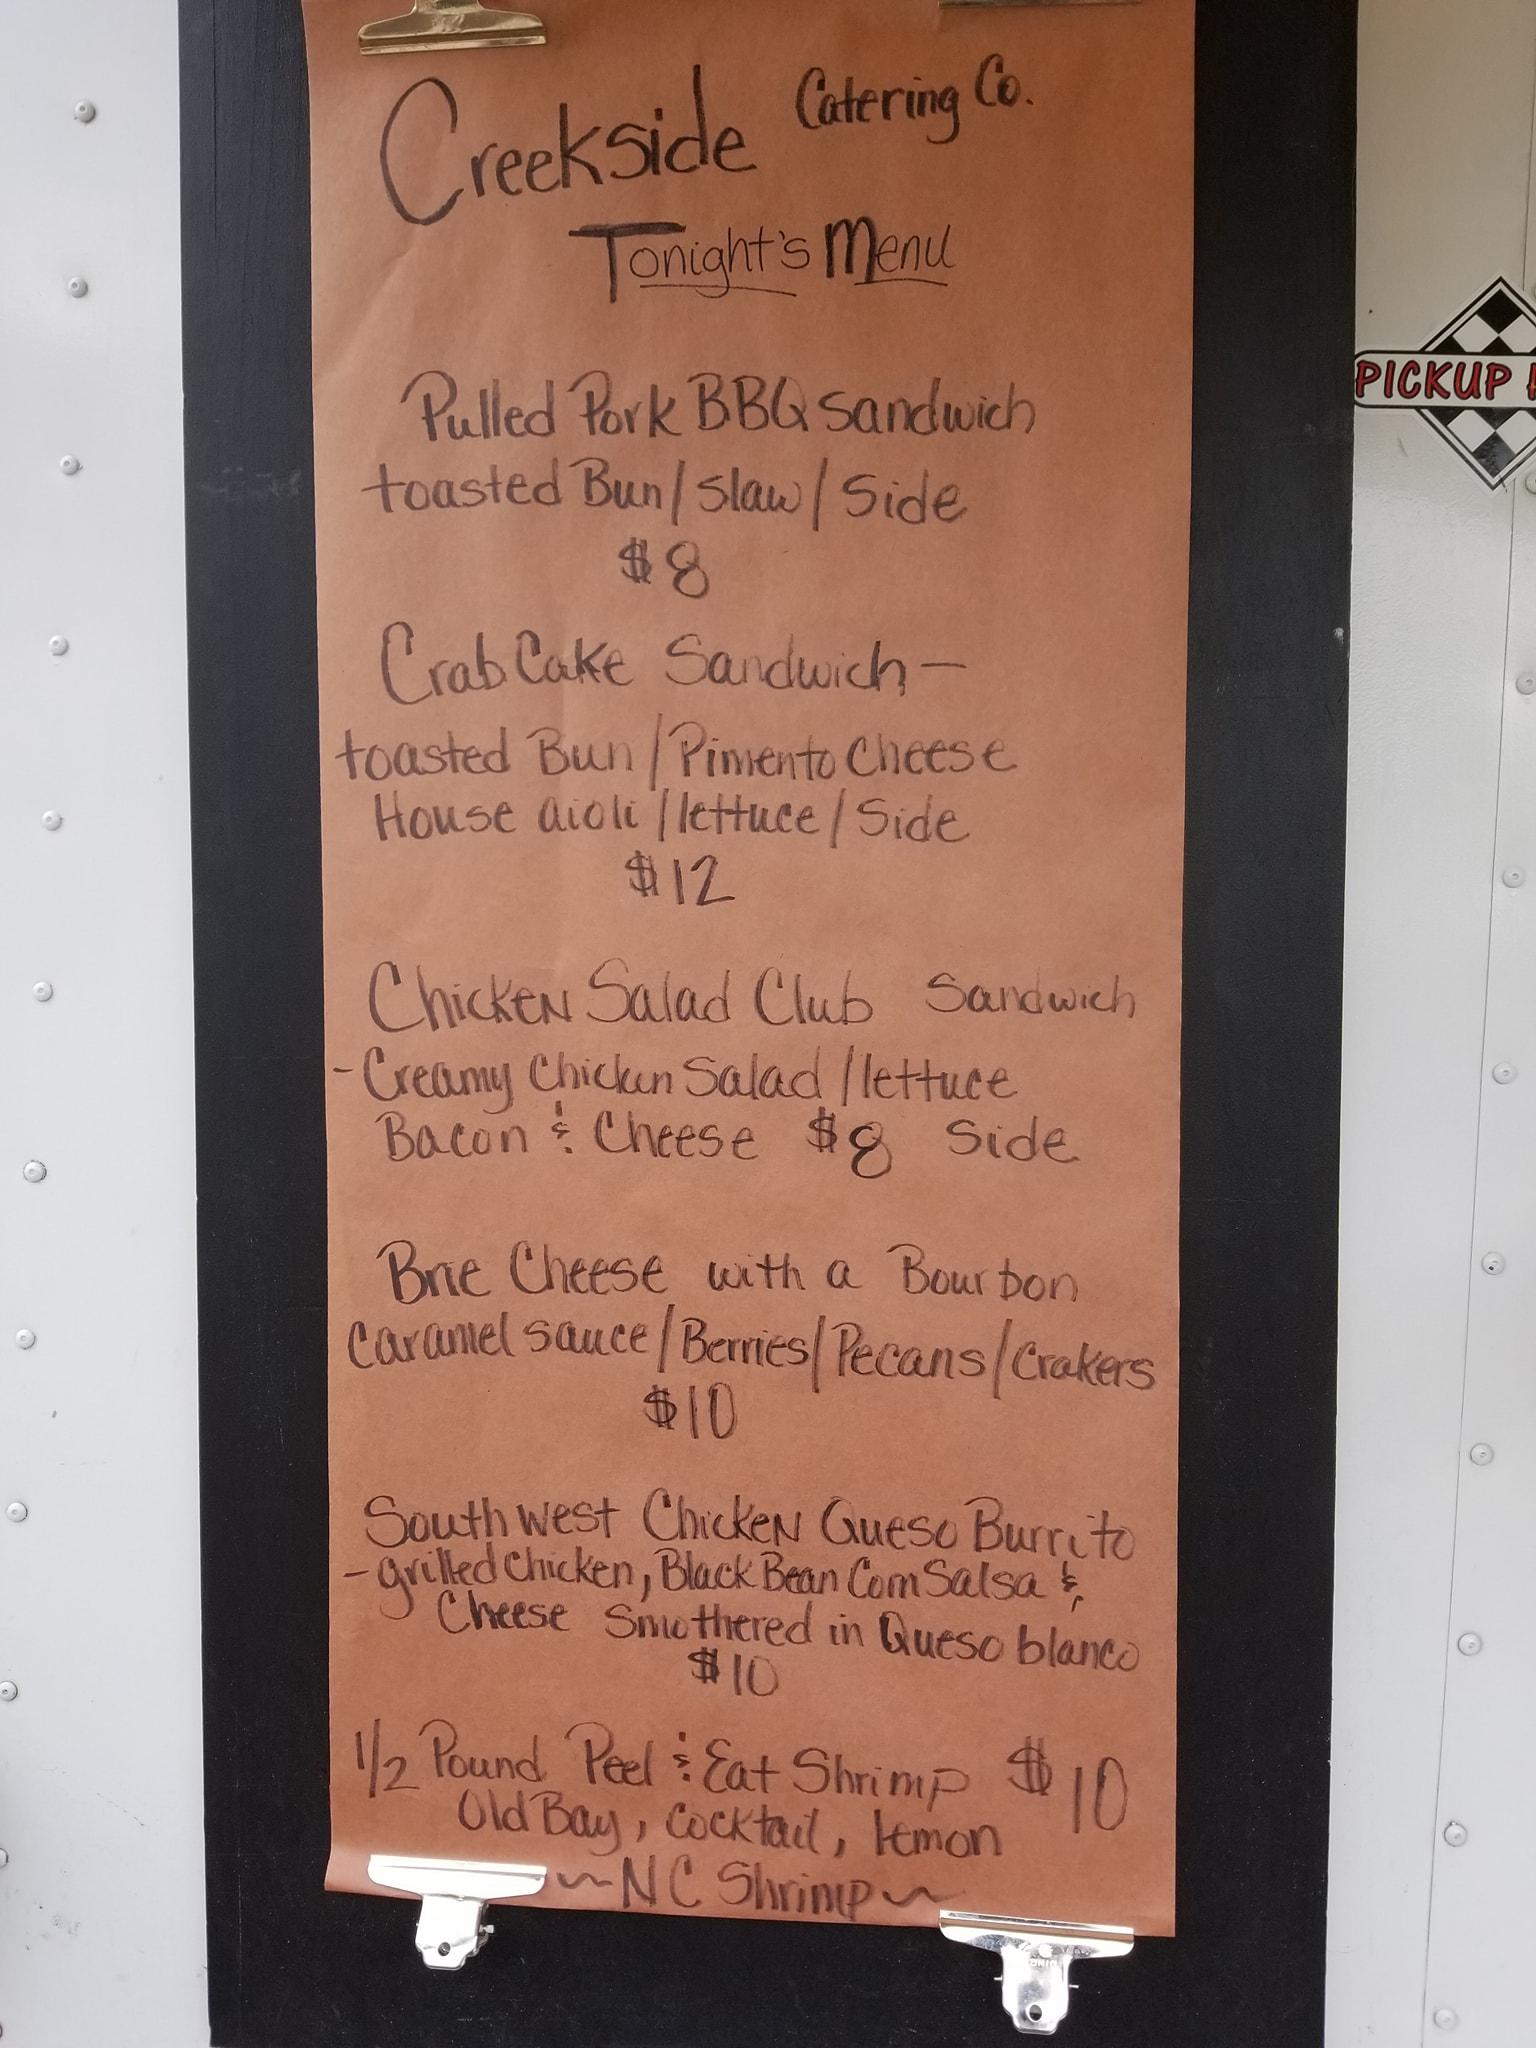 Creekside Catering Co.
Tonight's Menu
Pulled Pork BBQ Sandwich
toasted Bun / Slaw / Side
$8
Crab Cake Sandwich —
toasted Bun / Pimento Cheese
House aioli / lettuce / Side
$12
Chicken Salad Club Sandwich
- Creamy Chicken Salad / lettuce
Bacon & Cheese $8 Side
Brie Cheese with a Bourbon
Caramel sauce / Berries / Pecans / Crakers
$10
Southwest Chicken Queso Burrito
- grilled Chicken, Black Bean Corn Salsa &
Cheese Smothered in Queso blanco
$10
1/2 Pound Peel & Eat Shrimp $10
Old Bay, cocktail, lemon
~ NC Shrimp ~
PICKUP